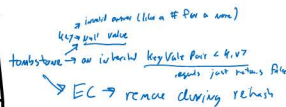 → invalid answer (like a # for a name)
key → null value
tombstone → an inherited KeyValue Pair < K, V >
equals just returns false
→ EC → remove during rehash